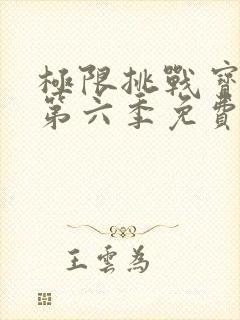 極限挑戰寶
第六季免費
王雲為